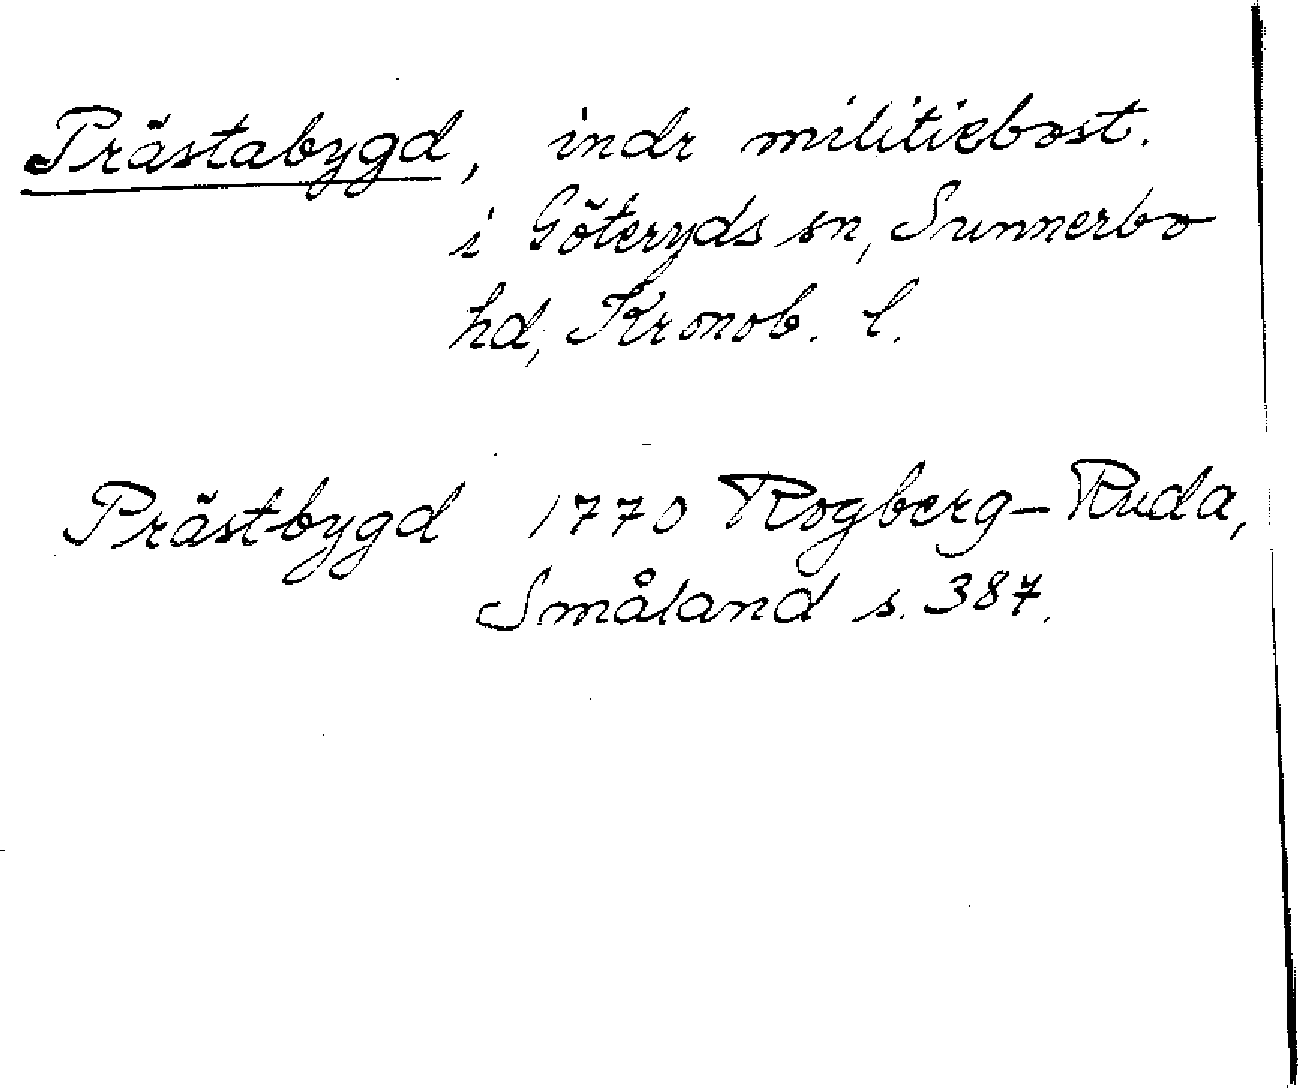 Prästabygd, indr militiebost.
i Göteryds sn, Sunnerbo
hd, Kronob. l.
Prästbygd 1770 Rogberg-Ruda,
Småland s. 387.